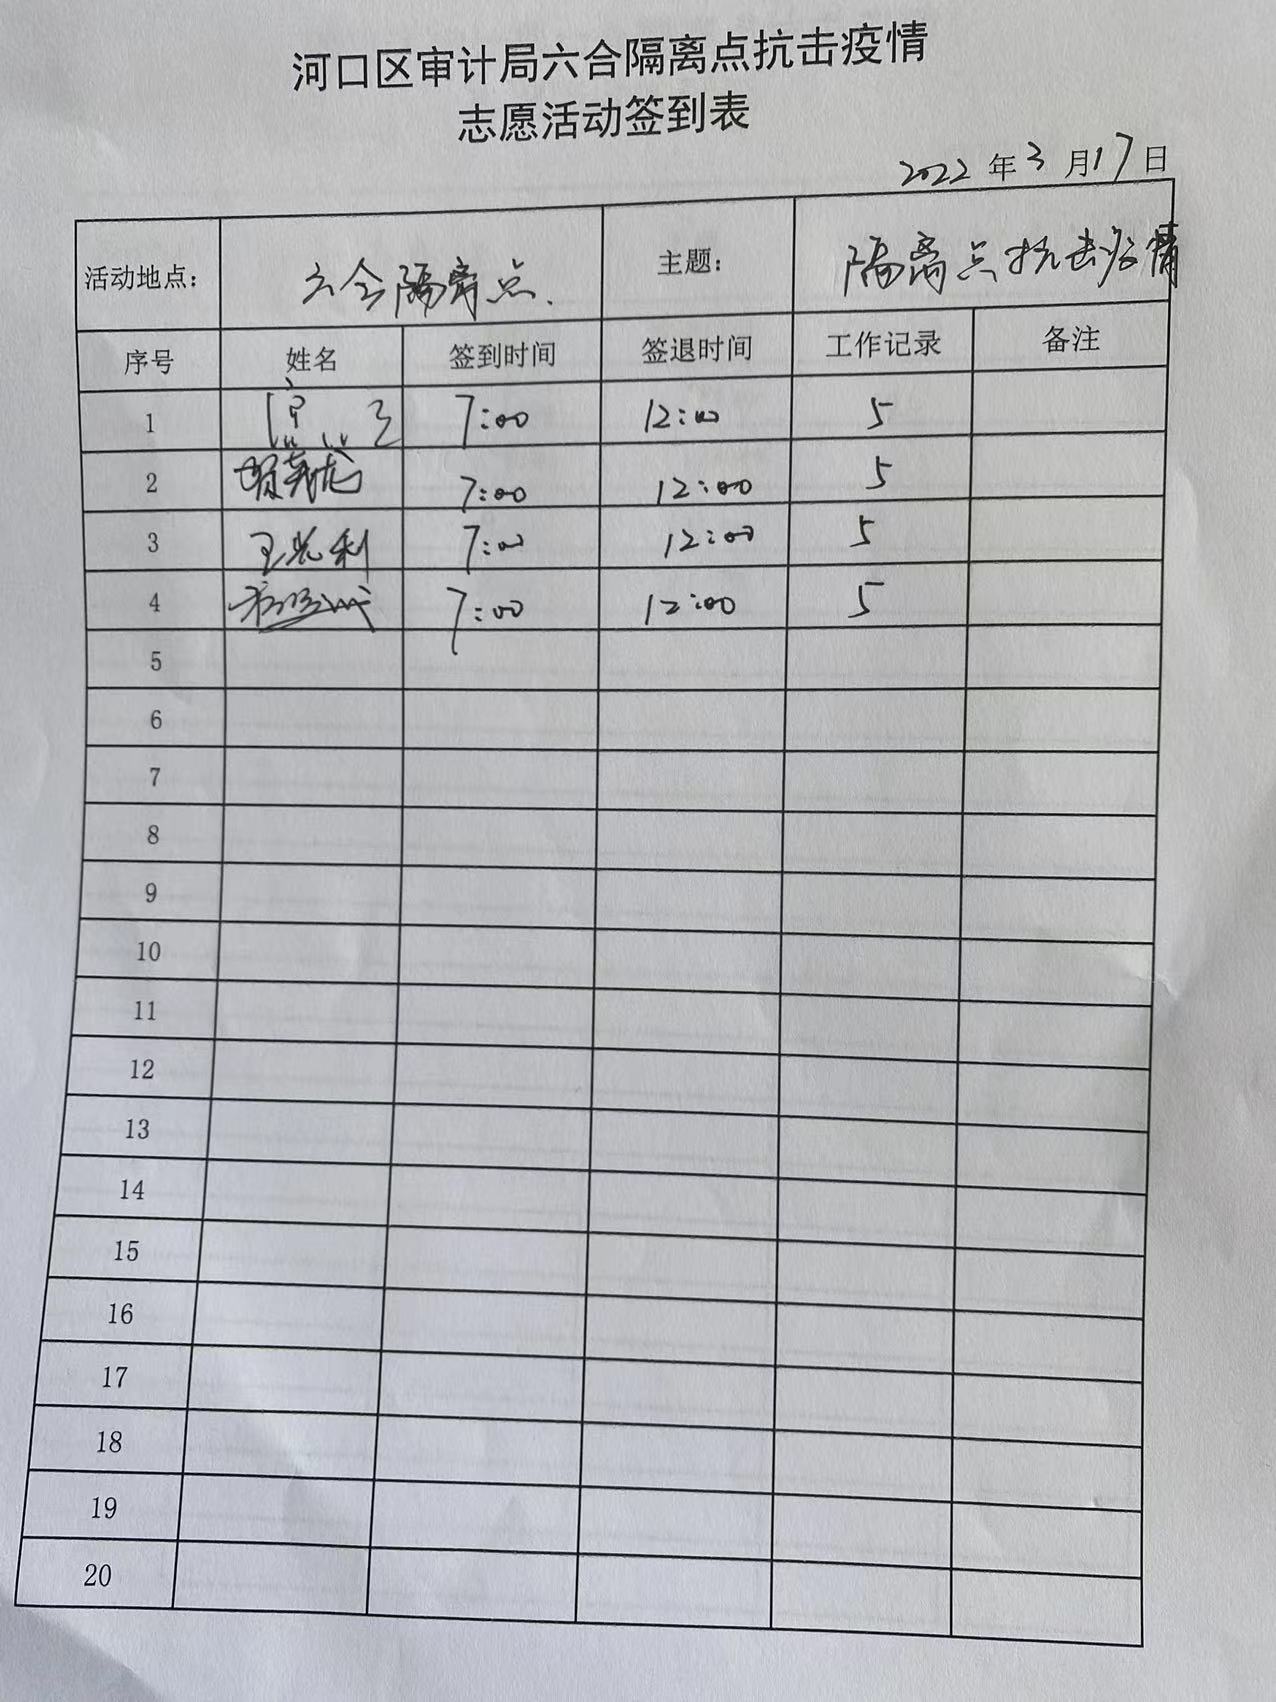 河口区审计局六合隔离点抗击疫情
志愿活动签到表
2022 年 3 月 17 日
活动地点： 六合隔离点 主题： 隔离点抗击疫情
序号 姓名 签到时间 签退时间 工作记录 备注
1 7:00 12:00 5
2 7:00 12:00 5
3 7:00 12:00 5
4 7:00 12:00 5
5
6
7
8
9
10
11
12
13
14
15
16
17
18
19
20